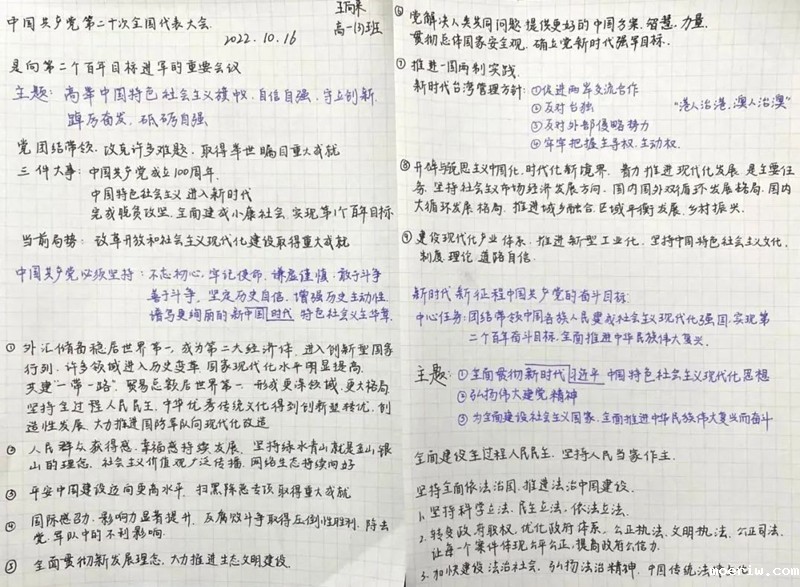 中国共产党第二十次全国代表大会
高一(3)班
2022.10.16
是向第二个百年目标进军的重要会议
主题: 高举中国特色社会主义旗帜、自信自强、守正创新、
踔厉奋发、砥砺自强
党团结带领、攻克许多难题、取得举世瞩目重大成就
三件大事: 中国共产党成立100周年.
中国特色社会主义进入新时代
完成脱贫攻坚、全面建成小康社会、实现第1个百年目标
当前局势: 改革开放和社会主义现代化建设取得重大成就
中国共产党必须坚持: 不忘初心、牢记使命、谦虚谨慎、敢于斗争
善于斗争、坚定历史自信、增强历史主动性
谱写更绚丽的新中国时代 特色社会义主华章.
① 外汇储备稳居世界第一, 成为第二大经济体、进入创新型国家
行列. 许多领域进入历史变革 国家现代化水平明显提高.
共建"一带一路", 贸易总额居世界第一, 形成更深领域、更大格局.
坚持全过程人民民主, 中华优秀传统文化得到创新型转优, 创
造性发展, 大力推进国防军队向现代化改造
② 人民群众获得感、幸福感持续发展, 坚持绿水青山就是金山银
山的理念, 社会主义价值观广泛传播, 网络生态持续向好
③ 平安中国建设迈向更高水平, 扫黑除恶专项取得重大成就
④ 国际感召力、影响力显著提升, 反腐败斗争取得压倒性胜利, 除去
党、军队中的不利影响.
⑤ 全面贯彻新发展理念, 大力推进生态文明建设
⑥ 党解决人类共同问题提供更好的中国方案、智慧、力量.
贯彻总体国家安全观, 确立党新时代强军目标.
⑦ 推进一国两制实践.
新时代台湾管理方针: ①促进两岸交流合作
②反对台独
③反对外部侵略势力
④牢牢把握主导权、主动权.
"港人治港, 澳人治澳"
⑧ 开辟马克思主义中国化、时代化新境界. 着力推进现代化发展, 是主要任
务, 坚持社会主义市场经济发展方向. 国内国外双循环发展格局. 国内
大循环发展格局. 推进城乡融合、区域平衡发展、乡村振兴.
⑨ 建设现代化产业体系、推进新型工业化、坚持中国特色社会主义文化、
制度、理论、道路自信.
新时代新征程中国共产党的奋斗目标:
中心任务: 团结带领中国各族人民要成社会主义现代化强国, 实现第
二个百年奋斗目标, 全面推进中华民族伟大复兴.
主题: ①全面贯彻新时代习近平中国特色社会主义现代化思想
②弘扬伟大建党精神
③为全面建设社会主义国家、全面推进中华民族伟大复兴而奋斗
全面建设全过程人民民主, 坚持人民当家作主.
坚持全面依法治国, 推进法治中国建设.
1. 坚持科学立法、民主立法、依法立法.
2. 转变政府职权, 优化政府体系, 公正执法、文明执法, 公正司法.
让每个案件体现公平公正, 提高政府公信力.
3. 加快建设法治社会, 弘扬法治精神, 中国传统法